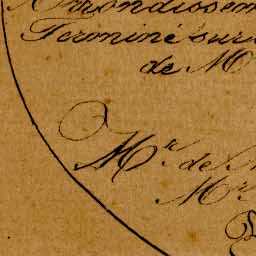 Arrondissem
Terminé sur
de M
Mr. de
Mr